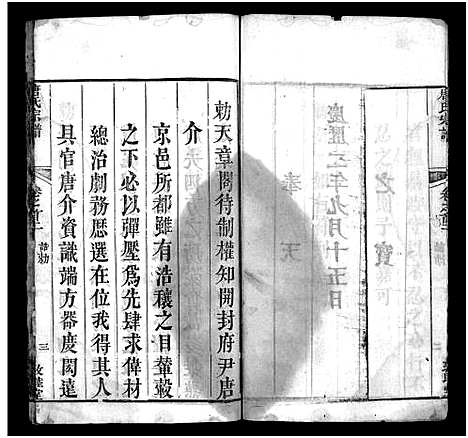 唐氏宗譜
卷之首
誥勅
二
慶歷二年九月十五日
奉
天
之
寶
勅天章閣待制權知開封府尹唐
介
京邑所都雖有浩穰之目輦轂
之下必以彈壓爲先肆求偉材
總治劇務歷選在位我得其人
具官唐介資識端方器慶閎達
唐氏宗譜
卷之首
誥勅
三